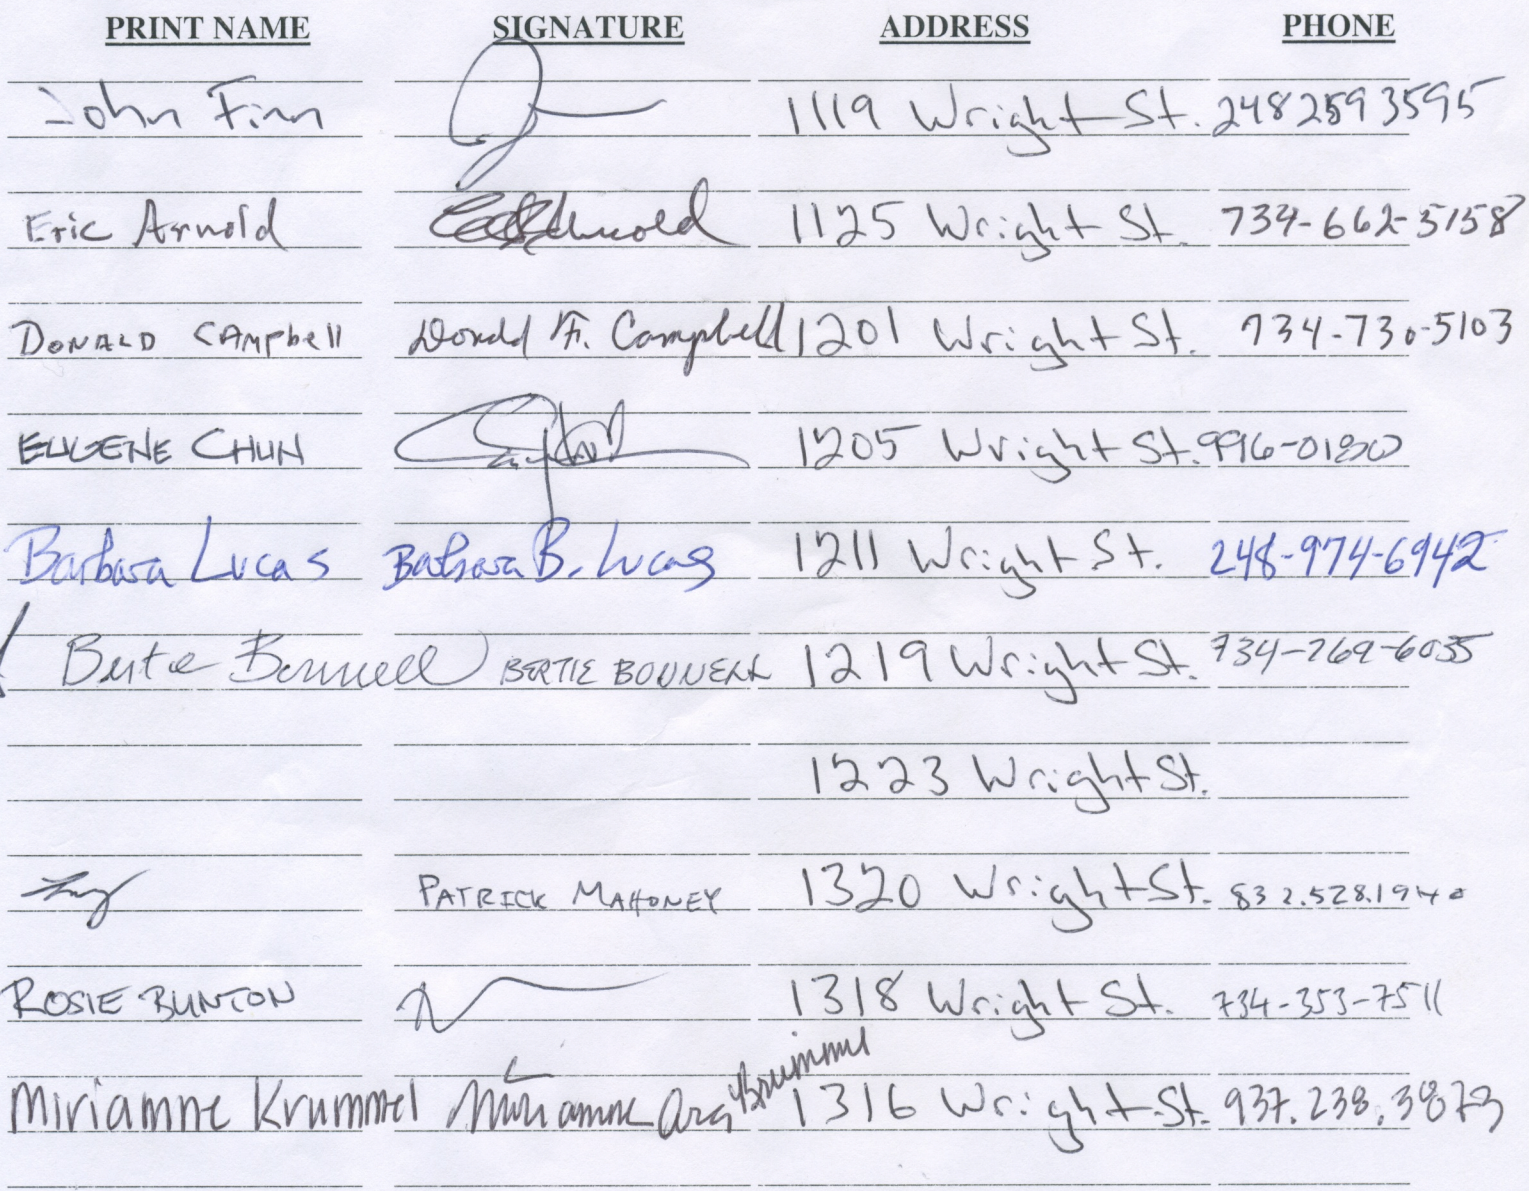 PRINT NAME SIGNATURE ADDRESS PHONE
John Finn 1119 Wright St. 2482593595
Eric Arnold Arnold 1125 Wright St. 734-662-5158
DONALD CAMPbell Donald F. Campbell 1201 Wright St. 734-730-5103
EUGENE CHUN 1205 Wright St. 996-0180
Barbara Lucas Barbara B. Lucas 1211 Wright St. 248-974-6942
Bertie Bonnell BERTIE BONNELL 1219 Wright St. 734-769-6035
1223 Wright St.
PATRICK MAHONEY 1320 Wright St. 832.528.1940
ROSIE BUNTON 1318 Wright St. 734-353-7511
Miriamne Krummel Miriamne Ara Krummel 1316 Wright St. 937.238.3873